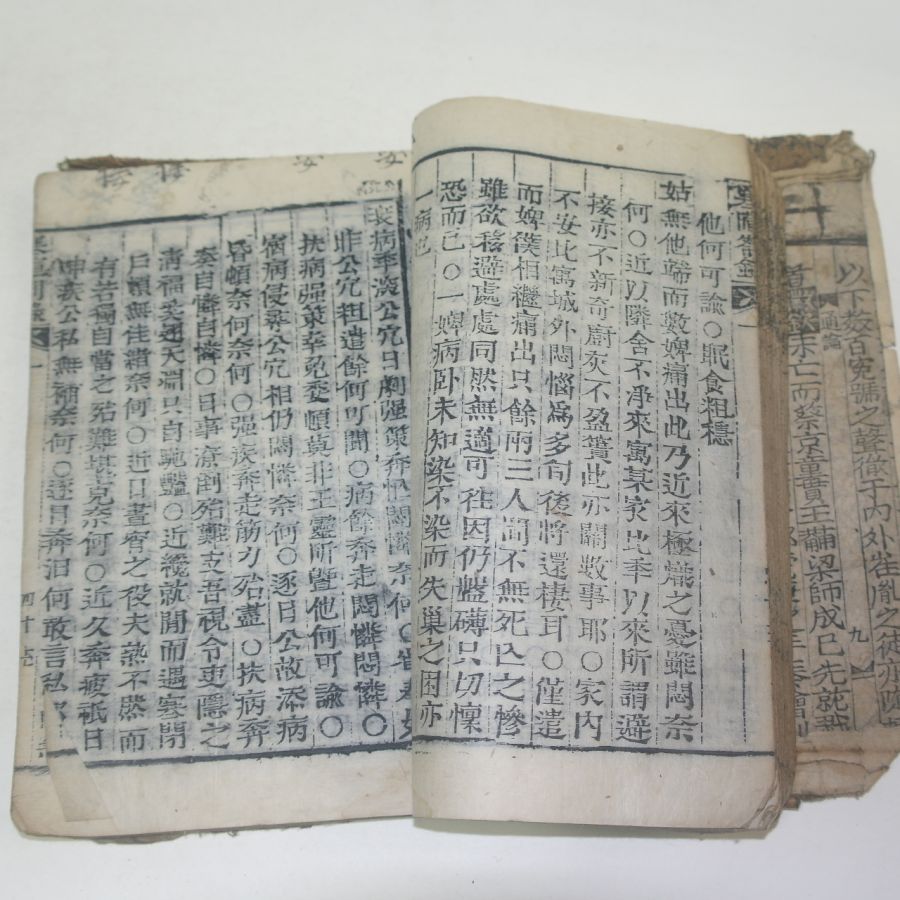 以下姦百寃號之
通論
末亡而祭京童貫王黼梁師成已先就
九
他何可諭○眠食粗穩
姑無他端而數婢痛出此乃近來極熾之憂雖悶奈
何○近以隣舍不淨來寓某家此季以來所謂避
接亦不新奇廚灰不盈簣此亦關數事耶○家內
不安此寓城外悶惱爲多旬後將還棲耳○僅遣
而婢僕相繼痛出只餘兩三人間不無死亾之慘
雖欲移避處處同然無適可往因仍蟄礴只切懍
恐而已○一婢病臥未知染不染而失巢之困亦
一病也
衰病季深公冗日劇强策奔忙悶憐奈何○
昨公冗粗遣餘何可聞○病餘奔走悶憐悶憐○
扶病强策幸免委頓莫非王靈所曁他何可諭○
宿病侵尋公冗相仍悶憐奈何○逐日公故添病
昏頓奈何奈何○强疾奔走筋力殆盡○扶病奔
奏自憐自憐○日事漸創殆難支吾視令吏隱之
淸福奚翅天淵只自豔○近纔就閒而遇寒閉
戶頓無佳緖奈何○近日晝宵之役夫熱不然而
有若獨自當之殆難堪克奈何○近久奔疲祇日
呻疾公私無補奈何○逐日奔汨何敢言私
四十